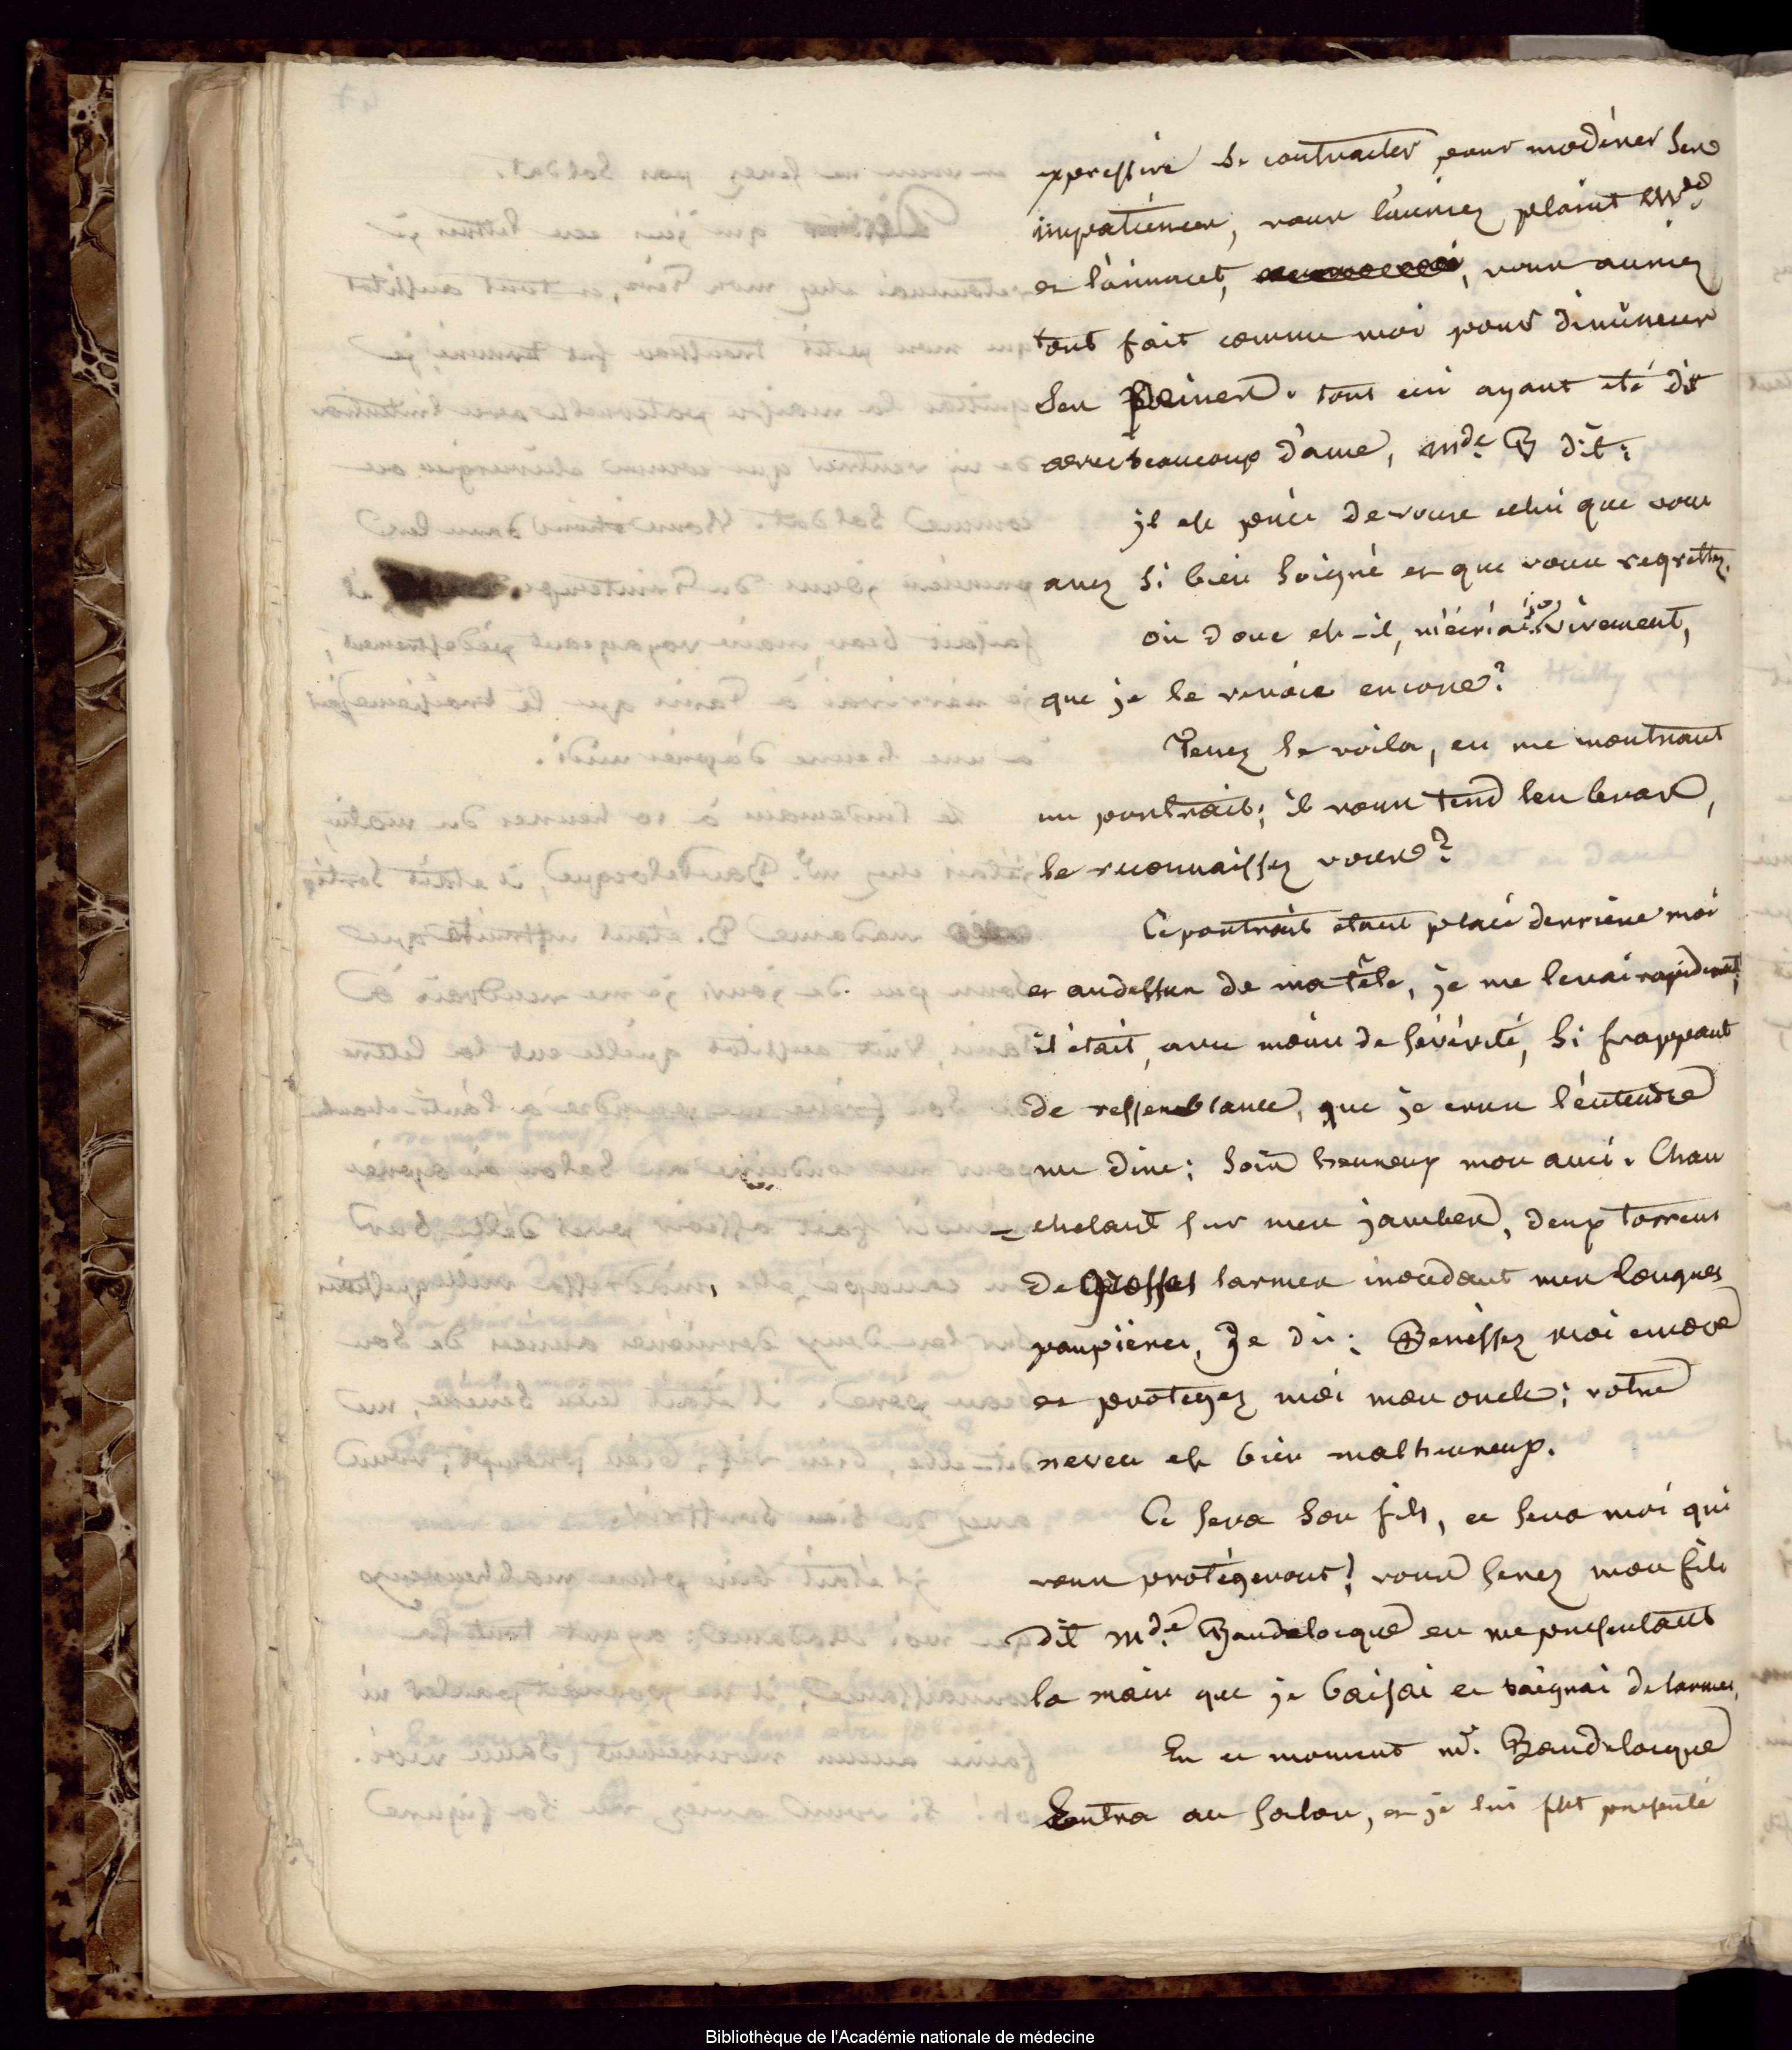 expressive se contracter pour modérer ses
impatiences, vous l'auriez plaint Mde
et l'aimant, vous auriez
tout fait comme moi pour diminuer
ses Peines. tout ceci ayant été dit
avec beaucoup d'ame, mde B dit:
il est près de vous celui que vous
avez si bien soigné et que vous regrettez.
où donc est-il, m'écriai je vivement,
que je le revoie encore?
Tenez le voila, en me montrant
un portrait; il vous tend les bras,
le reconnaissez vous?
Ce portrait etant placé derriere moi
et audessus de ma tête, je me levai rapidement;
il était, avec moins de sévérité, si frappant
de ressemblance, que je crus l'entendre
me dire; sois heureux mon ami. Chan
=chelant sur mes jambes, deux torrens
de grosses larmes inondant mes longues
paupières, Je dis: Benissez moi encore
et protegez moi mon oncle; votre
neveu est bien malheureux.
Ce sera son fils, ce sera moi qui
vous protégeront! vous serez mon fils
dit mde Baudelocque en me présentant
la main que je baisai et baignai de larmes.
En ce moment mr. Baudelocque
Entra au salon, et je lui fus présenté
Bibliothèque de l'Académie nationale de médecine